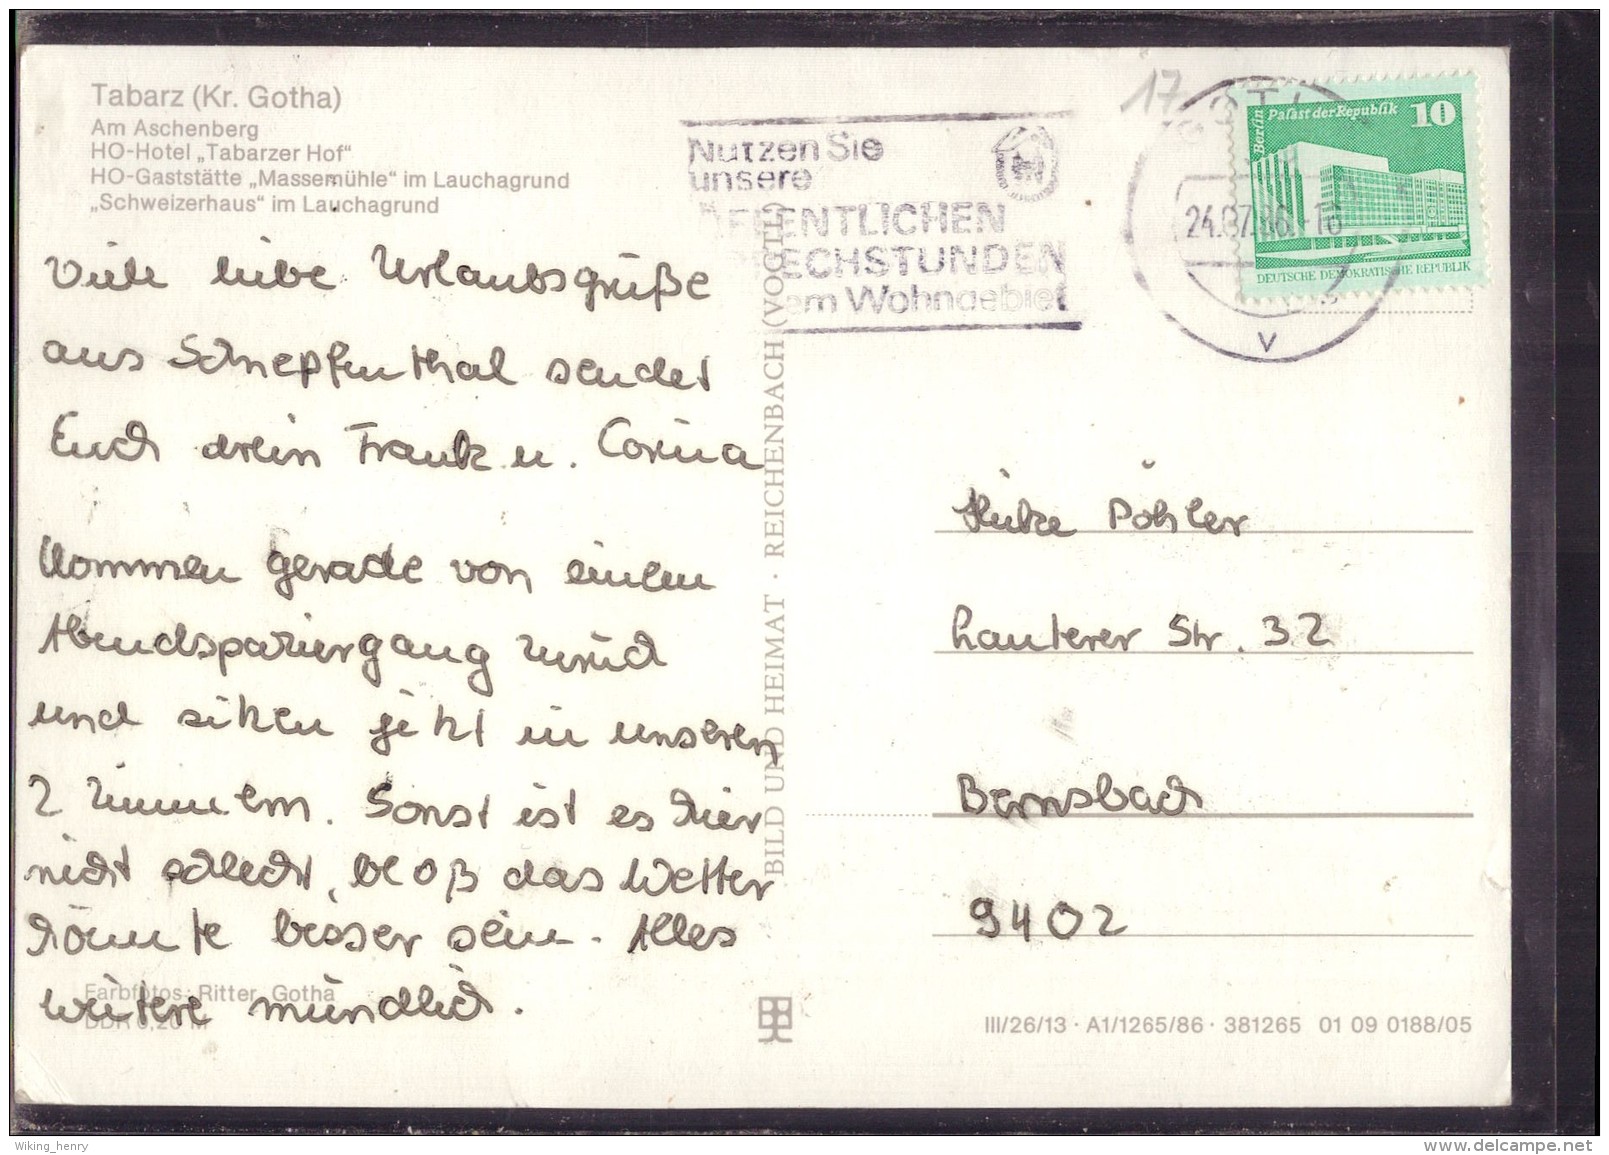 Tabarz (Kr. Gotha)
Am Aschenberg
HO-Hotel „Tabarzer Hof“
HO-Gaststätte „Massemühle“ im Lauchagrund
„Schweizerhaus“ im Lauchagrund
Viele liebe Urlaubsgrüße
aus Schnepfenthal sendet
Euch drein Frank u. Corina
Kommen gerade von einem
Abendspaziergang zurück
und sitzen jetzt in unseren
2 Zimmern. Sonst ist es hier
nicht schlecht, bloß das Wetter
könnte besser sein. Alles
weitere mündlich.
Farbfotos: Ritter, Gotha
DDR 0,20 M
BILD UND HEIMAT · REICHENBACH (VOGTL)
Nutzen Sie
unsere
ÖFFENTLICHEN
SPRECHSTUNDEN
im Wohngebiet
17
24.07.86.-16
V
Berlin Palast der Republik 10
DEUTSCHE DEMOKRATISCHE REPUBLIK
Heike Pöhler
Lauterer Str. 32
Bernsbach
9402
III/26/13 · A1/1265/86 · 381265 01 09 0188/05
Wiking_henry
www.delcampe.net